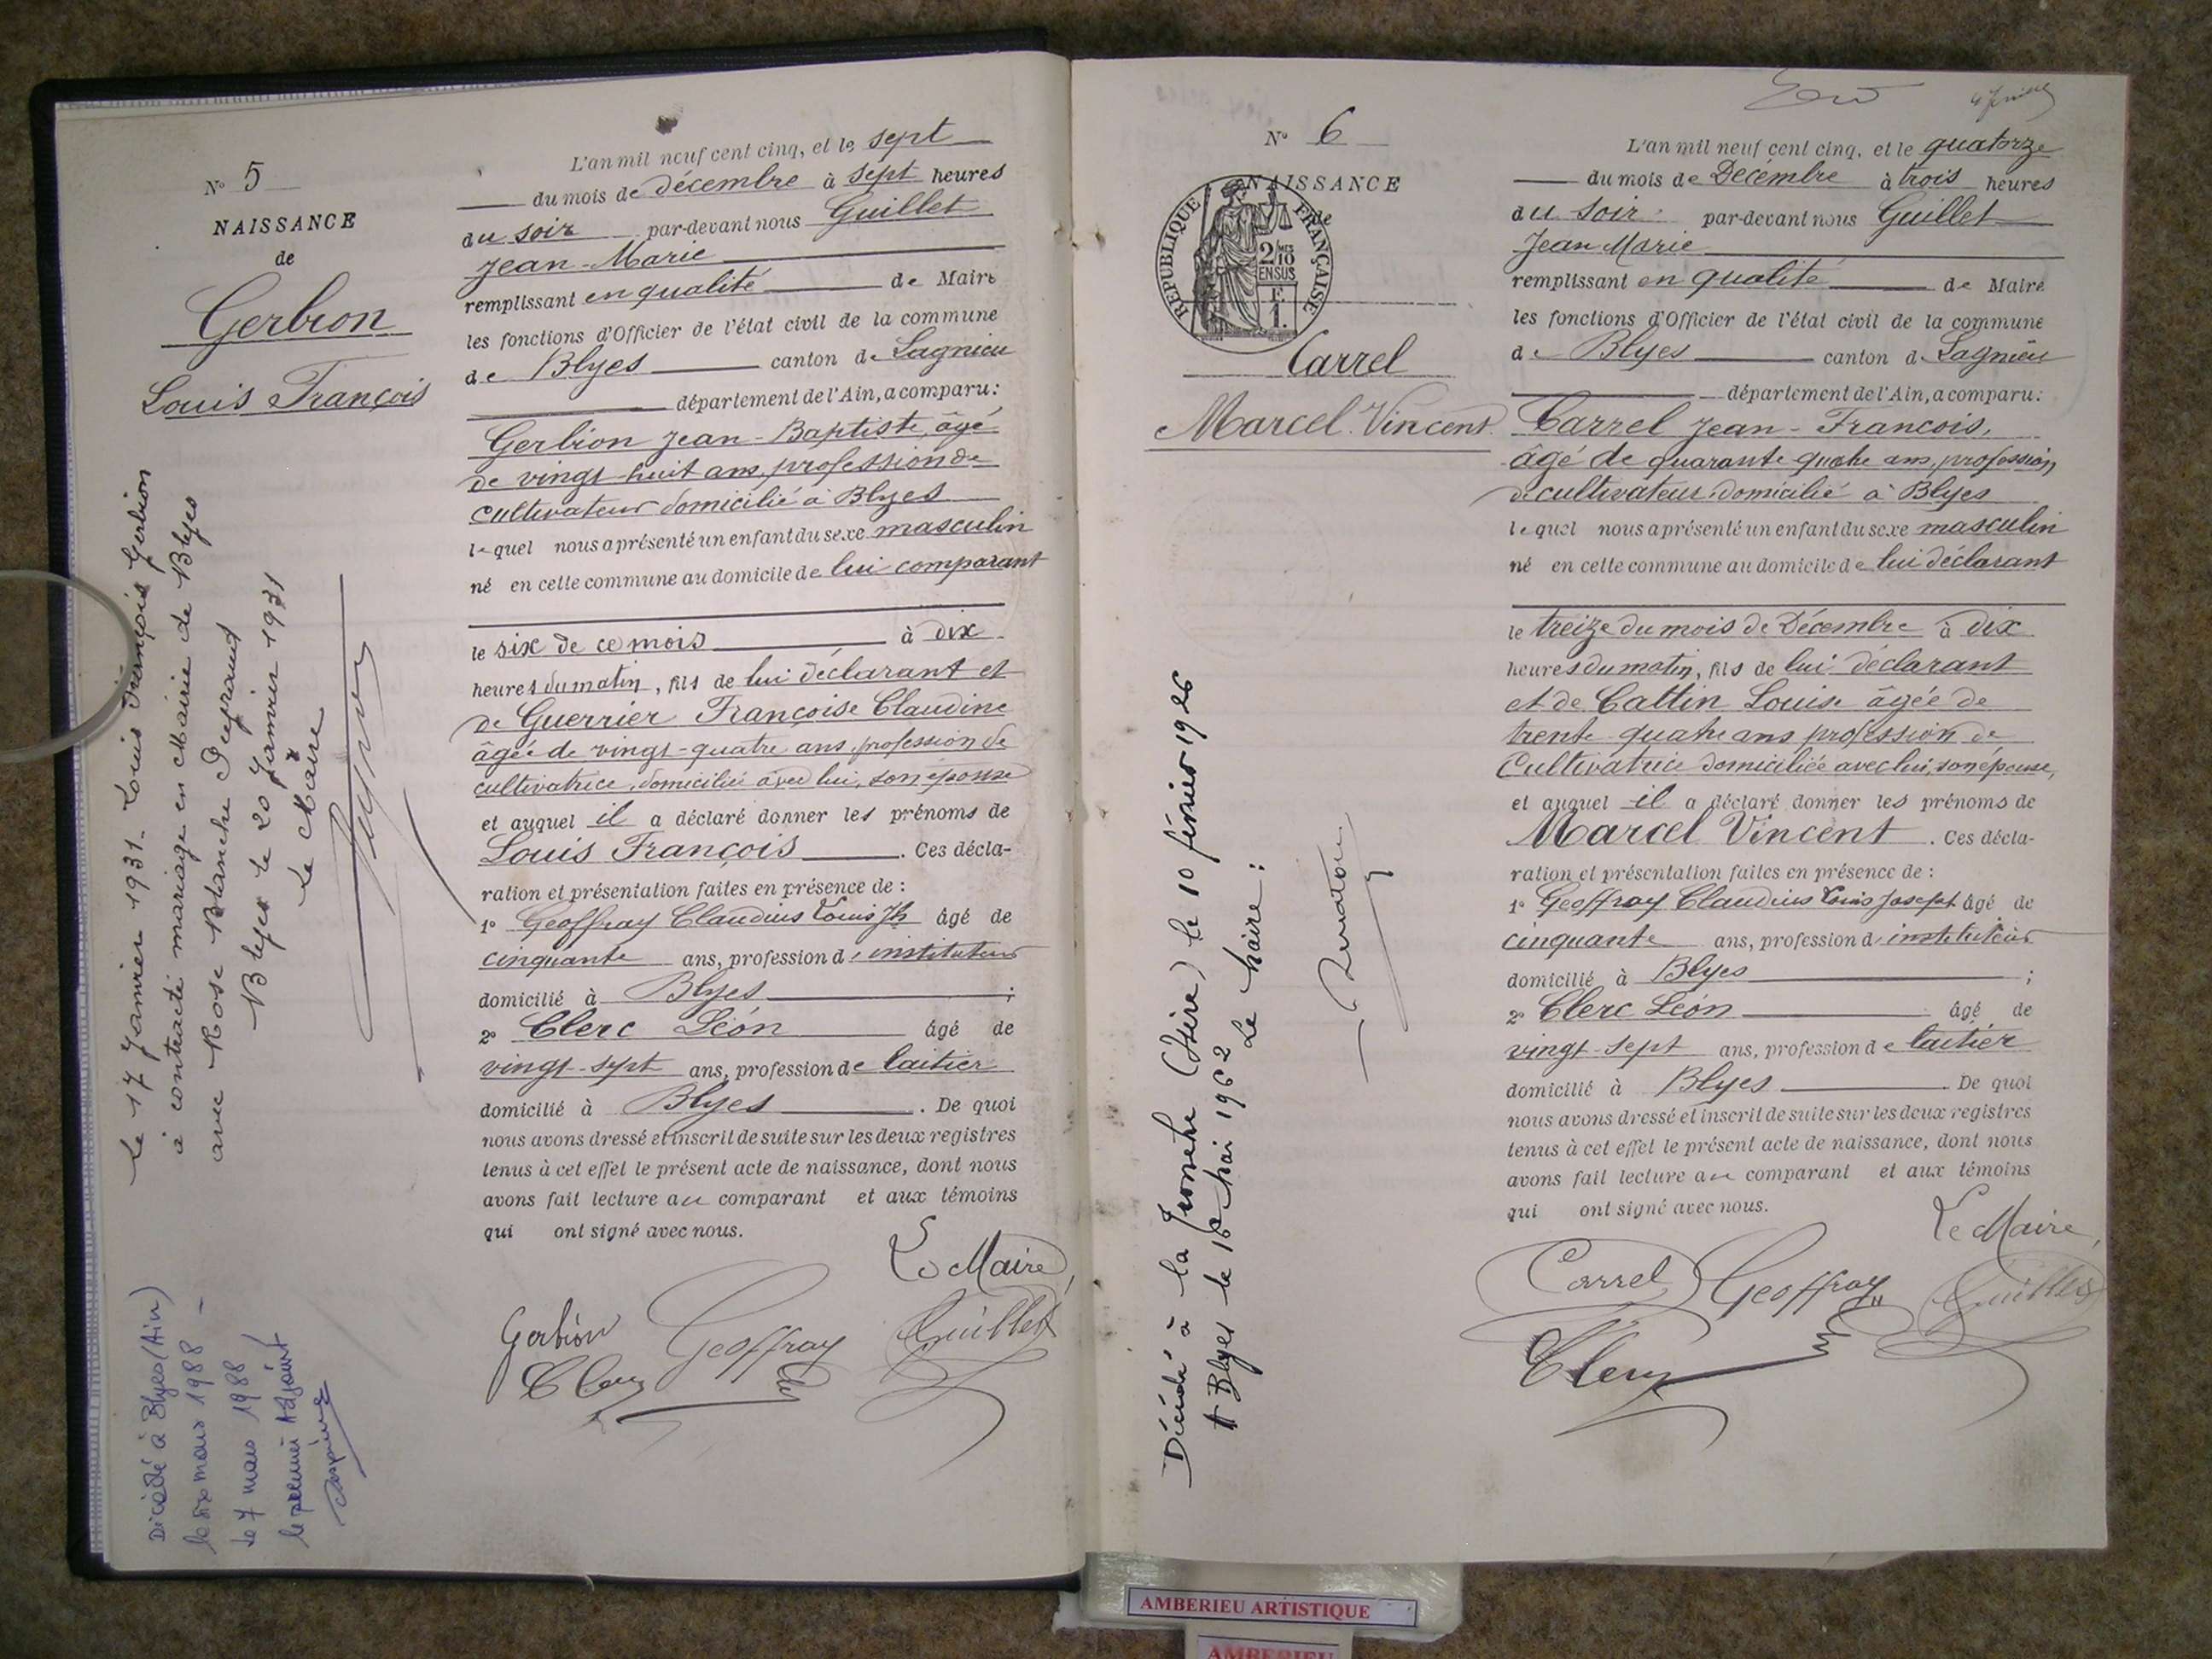 N° 5
NAISSANCE
de
Gerbion
Louis François
Le 17 Janvier 1931. Louis François Gerbion
a contracté mariage en Mairie de Blyes
avec Rose Blanche
Blyes le 20 Janvier 1931
Le Maire
Décédé à Blyes (Ain)
le six mars 1988 -
Le 7 mars 1988
le premier Adjoint
L'an mil neuf cent cinq, et le sept
du mois de décembre à sept heures
du soir par-devant nous Guillet
Jean-Marie
remplissant en qualité de Maire
les fonctions d'Officier de l'état civil de la commune
de Blyes canton de Lagnieu
département de l'Ain, a comparu:
Gerbion Jean-Baptiste, âgé
de vingt-huit ans, profession de
cultivateur domicilié à Blyes
lequel nous a présenté un enfant du sexe masculin
né en cette commune au domicile de lui comparant
le six de ce mois à dix
heures du matin, fils de lui déclarant et
de Guerrier Françoise Claudine
âgée de vingt-quatre ans, profession de
cultivatrice, domiciliée avec lui, son épouse
et auquel il a déclaré donner les prénoms de
Louis François. Ces décla-
ration et présentation faites en présence de :
1° Geoffray Claudius Louis Jh âgé de
cinquante ans, profession d' instituteur
domicilié à Blyes ;
2° Clerc Léon âgé de
vingt-sept ans, profession de laitier
domicilié à Blyes. De quoi
nous avons dressé et inscrit de suite sur les deux registres
tenus à cet effet le présent acte de naissance, dont nous
avons fait lecture au comparant et aux témoins
qui ont signé avec nous.
Le Maire,
Gerbion Geoffray Guillet
Clerc
N° 6
NAISSANCE
de
REPUBLIQUE FRANÇAISE
2/10 MES
EN SUS
F.
1.
Carrel
Marcel Vincent
Décédé à la Tronche (Isère) le 10 février 1926
A Blyes le 16 Mai 1962
Le Maire :
4 Juillet
L'an mil neuf cent cinq, et le quatorze
du mois de Décembre à trois heures
du soir par-devant nous Guillet
Jean Marie
remplissant en qualité de Maire
les fonctions d'Officier de l'état civil de la commune
de Blyes canton de Lagnieu
département de l'Ain, a comparu:
Carrel Jean-François,
âgé de quarante quatre ans, profession
de cultivateur domicilié à Blyes
lequel nous a présenté un enfant du sexe masculin
né en cette commune au domicile de lui déclarant
le treize du mois de Décembre à dix
heures du matin, fils de lui déclarant
et de Cattin Louise âgée de
trente-quatre ans profession de
Cultivatrice domiciliée avec lui, son épouse,
et auquel il a déclaré donner les prénoms de
Marcel Vincent. Ces décla-
ration et présentation faites en présence de :
1° Geoffray Claudius Louis Joseph âgé de
cinquante ans, profession d' instituteur
domicilié à Blyes ;
2° Clerc Léon âgé de
vingt-sept ans, profession de laitier
domicilié à Blyes. De quoi
nous avons dressé et inscrit de suite sur les deux registres
tenus à cet effet le présent acte de naissance, dont nous
avons fait lecture au comparant et aux témoins
qui ont signé avec nous.
Le Maire,
Carrel Geoffray Guillet
Clerc
AMBERIEU ARTISTIQUE
AMBERIEU